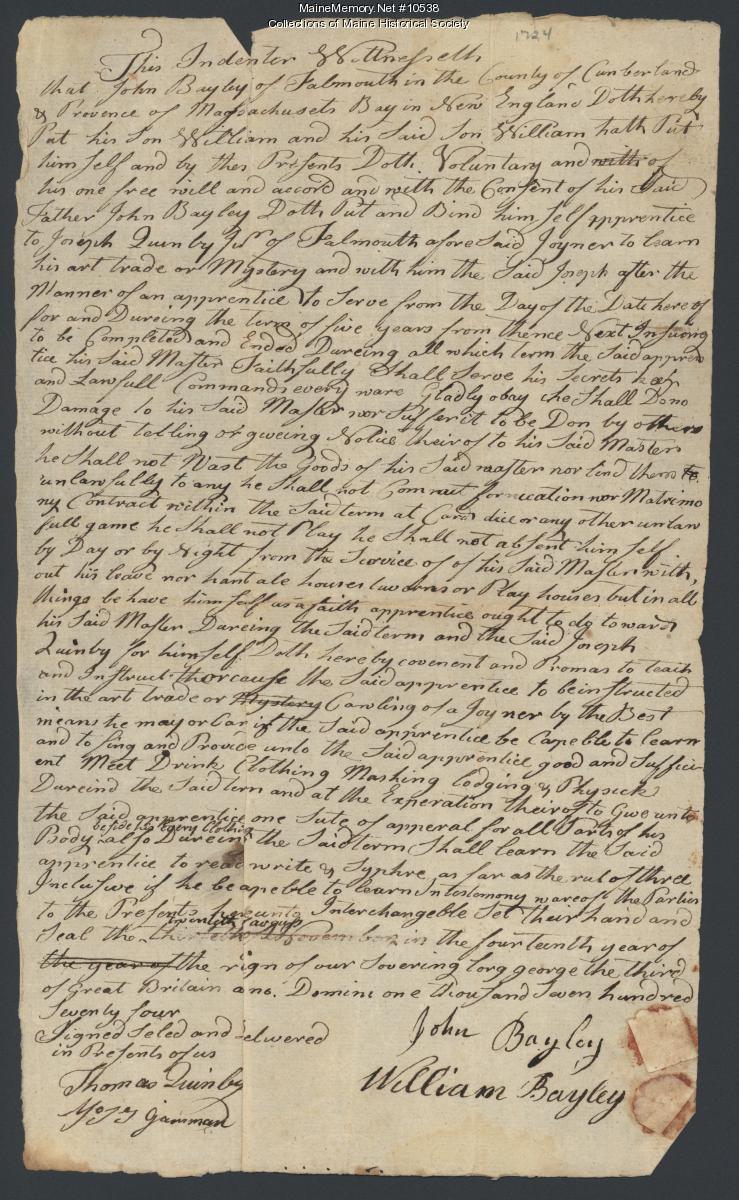 MaineMemory.Net #10538
Collections of Maine Historical Society
1724
This Indenter Wittnesseth
that John Bayley of Falmouth in the County of Cunberland
& Provence of Massachusets Bay in New England Doth hereby
Put his Son William and his Said Son William hath Put
him self and by thes Presents Doth Voluntary and with of
his one free will and accord and with the Consent of his Said
Father John Bayley Doth Put and Bind him self apprentice
to Joseph Quinby Jur of Falmouth afore Said Joyner to learn
his art trade or Mystery and with him the Said Joseph after the
Manner of an apprentice to Serve from the Day of the Date here of
for and Dureing the term of five years from thence Next Insuing
to be Compleated and Ended Dureing all which term the Said appren
tice his Said Master Faithfully Shall Serve his Secrets keep
and Lawfull Commands every ware Gladly obay he Shall Do no
Damage to his Said Master nor Suffer it to be Don by others
without telling or giveing Notice theirof to his Said Master
he Shall not Wast the Goods of his Said master nor lind them to
unlawfully to any he Shall not Commit fornication nor Matrimo
ny Contract within the Said term at Card dice or any other unlaw
full game he Shall not Play he Shall not absent him self
by Day or by Night from the Service of of his Said Master with,
out his leave nor hant ale houses taverns or Play houses but in all
things be have him self as a faith apprentice ought to do toward
his Said Master Dureing the Said term and the Said Joseph
Quinby for himself Doth hereby covenent and Promas to teach
and Instruct or cause the Said apprentice to be instructed
in the art trade or Mystery Cawling of a Joyner by the Best
means he may or Can if the Said apprentice be Capeble to learn
and to find and Provide unto the Said apprentice good and Suffici
ent Meet Drink Clothing Washing lodging & Physick
Dureind the Said term and at the Experation theirof to Give unto
the Said apprentice one Sute of apperal for all Parts of his
beside his every Clothing
Body also Dureing the Said term Shall learn the Said
apprentice to read write & Syphre as far as the rul of three
Inclusive if he be apeble to learn In testemony wareof the Parties
to the Presents hereunto Interchangeble Set their hand and
twentieth august
Seal the November in the fourteenth year of
the year of the rign of our Sovering lorg george the third
of Great Britain ano. Domini one thousand Seven hundred
Seventy four
Signed Seled and delivered
in Presents of us
John Bayley
Thomas Quinby
William Bayley